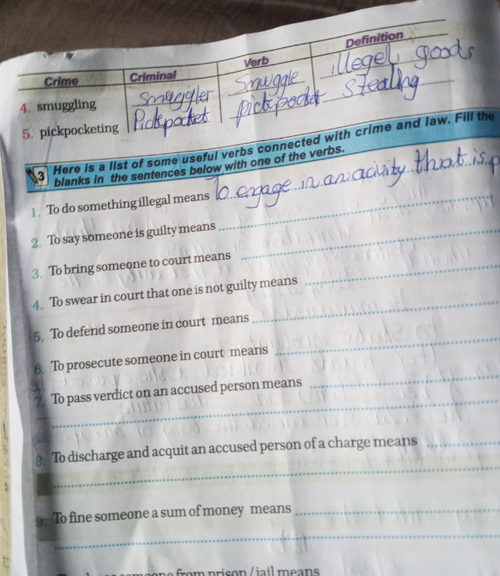 Crime Criminal Verb Definition
4. smuggling Smuggler Smuggle illegel goods
5. pickpocketing Pickpocket pickpocket Stealing
3 Here is a list of some useful verbs connected with crime and law. Fill the
blanks in the sentences below with one of the verbs.
1. To do something illegal means To engage in an acivity that is
2. To say someone is guilty means
3. To bring someone to court means
4. To swear in court that one is not guilty means
5. To defend someone in court means
6. To prosecute someone in court means
7. To pass verdict on an accused person means
8. To discharge and acquit an accused person of a charge means
9. To fine someone a sum of money means
from prison / jail means